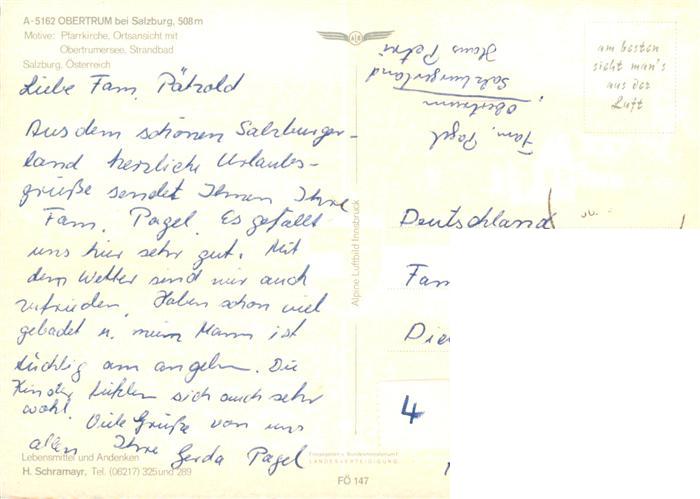 A-5162 OBERTRUM bei Salzburg, 508 m
Motive: Pfarrkirche, Ortsansicht mit
Obertrumersee, Strandbad
Salzburg, Österreich
Liebe Fam. Pätzold
Aus dem schönen Salzburger-
land herzliche Urlaubs-
grüße sendet Ihnen Ihre
Fam. Pagel. Es gefällt
uns hier sehr gut. Mit
dem Wetter sind wir auch
zufrieden. Haben schon viel
gebadet u. mein Mann ist
tüchtig am angeln. Die
Kinder fühlen sich auch sehr
wohl. Viele Grüße von uns
allen Ihre Gerda Pagel
Lebensmittel und Andenken
H. Schramayr, Tel. (06217) 325 und 289
Alpine Luftbild Innsbruck
Freigegeben v. Bundesministerium f.
LANDESVERTEIDIGUNG
FÖ 147
Fam. Pagel
Obertrum
Salzburgerland
Haus Petri
am besten
sieht man's
aus der
Luft
Deutschland
Fam
Die
4